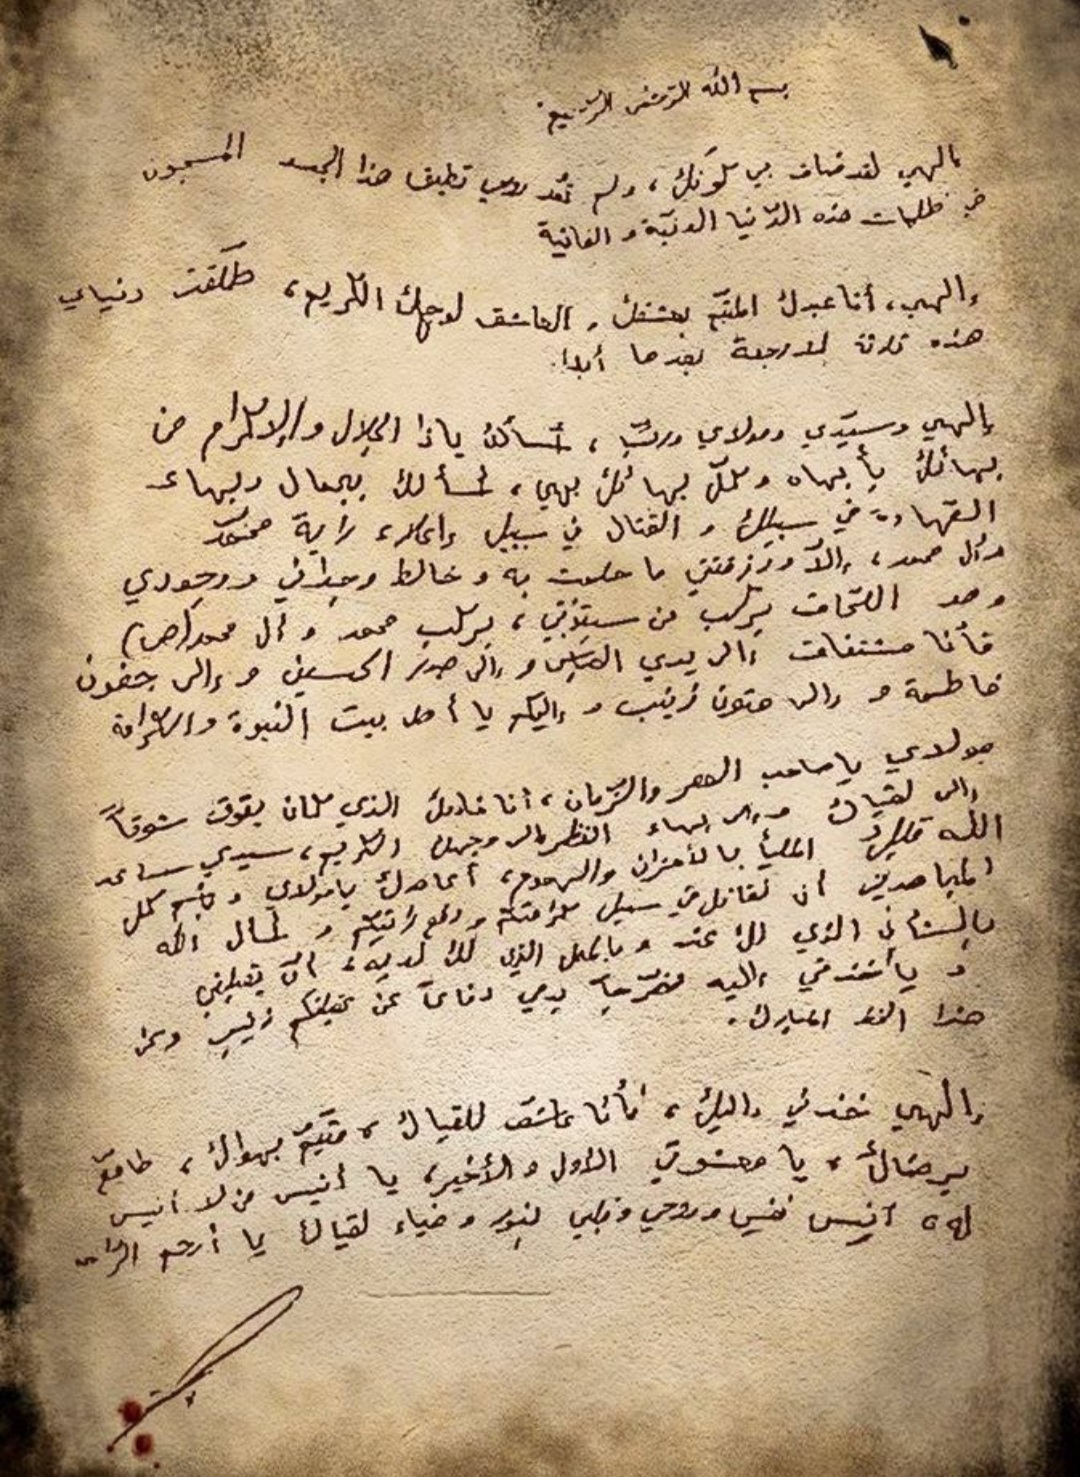 بسم الله الرحمن الرحيم
إلهي لقد ضاق بي كونك، ولم تعد روحي تطيق هذا الجسد المسجون
في ظلمات هذه الدّنيا الدنيّة و الفانية
إلهي، أنا عبدك المتيّم بعشقك و العاشق لوجهك الكريم، طلّقت دنياي
هذه ثلاثة لا رجعة بعدها أبدا.
إلهي وسيّدي ومولاي وربّي، أسألك يا ذا الجلال و الإكرام من
بهائك بأبهاه وكلّ بهائك بهي، أسألك بجمال وبهاء
الشهادة في سبيلك و القتال في سبيل إعلاء راية محمّد
وآل محمد، إلاّ ورزقتني ما حلمت به و خالط وجداني ووجودي
وهو اللّحاق بركب من سبقوني، بركب محمد و آل محمد (ص)
فأنا مشتاق إلى يدي العبّاس و إلى صدر الحسين و إلى جفون
فاطمة و إلى متون زينب و إليكم يا أهل بيت النبوة والكرامة
مولاي يا صاحب العصر والزّمان، أنا خادمك الذي كان يتوق شوقاً
إلى لقياك وإلى بهاء النظر إلى وجهك الكريم، سيدي ساعد
الله قلبك المليأ بالأحزان والهموم، أعاهدك يا مولاي و كل
المجاهدين أن نقاتل في سبيل كرامتكم ورفع رايتكم و أسأل الله
بالشأن الذي لك عنده و بالمحل الذي لك لديه، أن يتقبلني
و يأخذني إليه مضرّجاً بدمي دفاعاً عن زينب
هذا الخط المبارك.
إلهي خذني إليك، فأنا عاشق للقياك، متيّم بهواك، طامع
برضاك، يا معشوقي الأول و الأخير، يا أنيس من لا أنيس
له، آنس نفسي وروحي وقلبي بنور و ضياء لقياك يا أرحم الرّاحمين